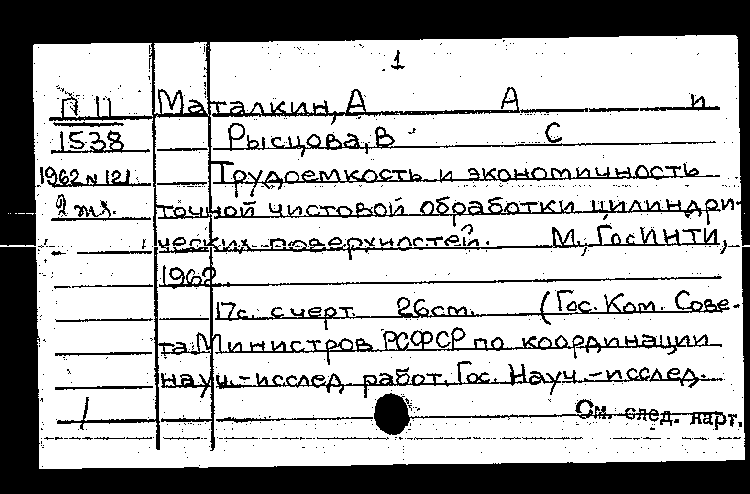 1
П П Маталкин, А А и
1538 Рысцова, В С
1962 N 121 Трудоемкость и экономичность
2 точной чистовой обработки цилиндри-
ческих поверхностей. М., ГосИНТИ,
1962.
17с. с черт. 26см. (Гос. Ком. Сове-
та Министров РСФСР по координации
науч.-исслед. работ. Гос. Науч.-исслед.
См. след. карт.